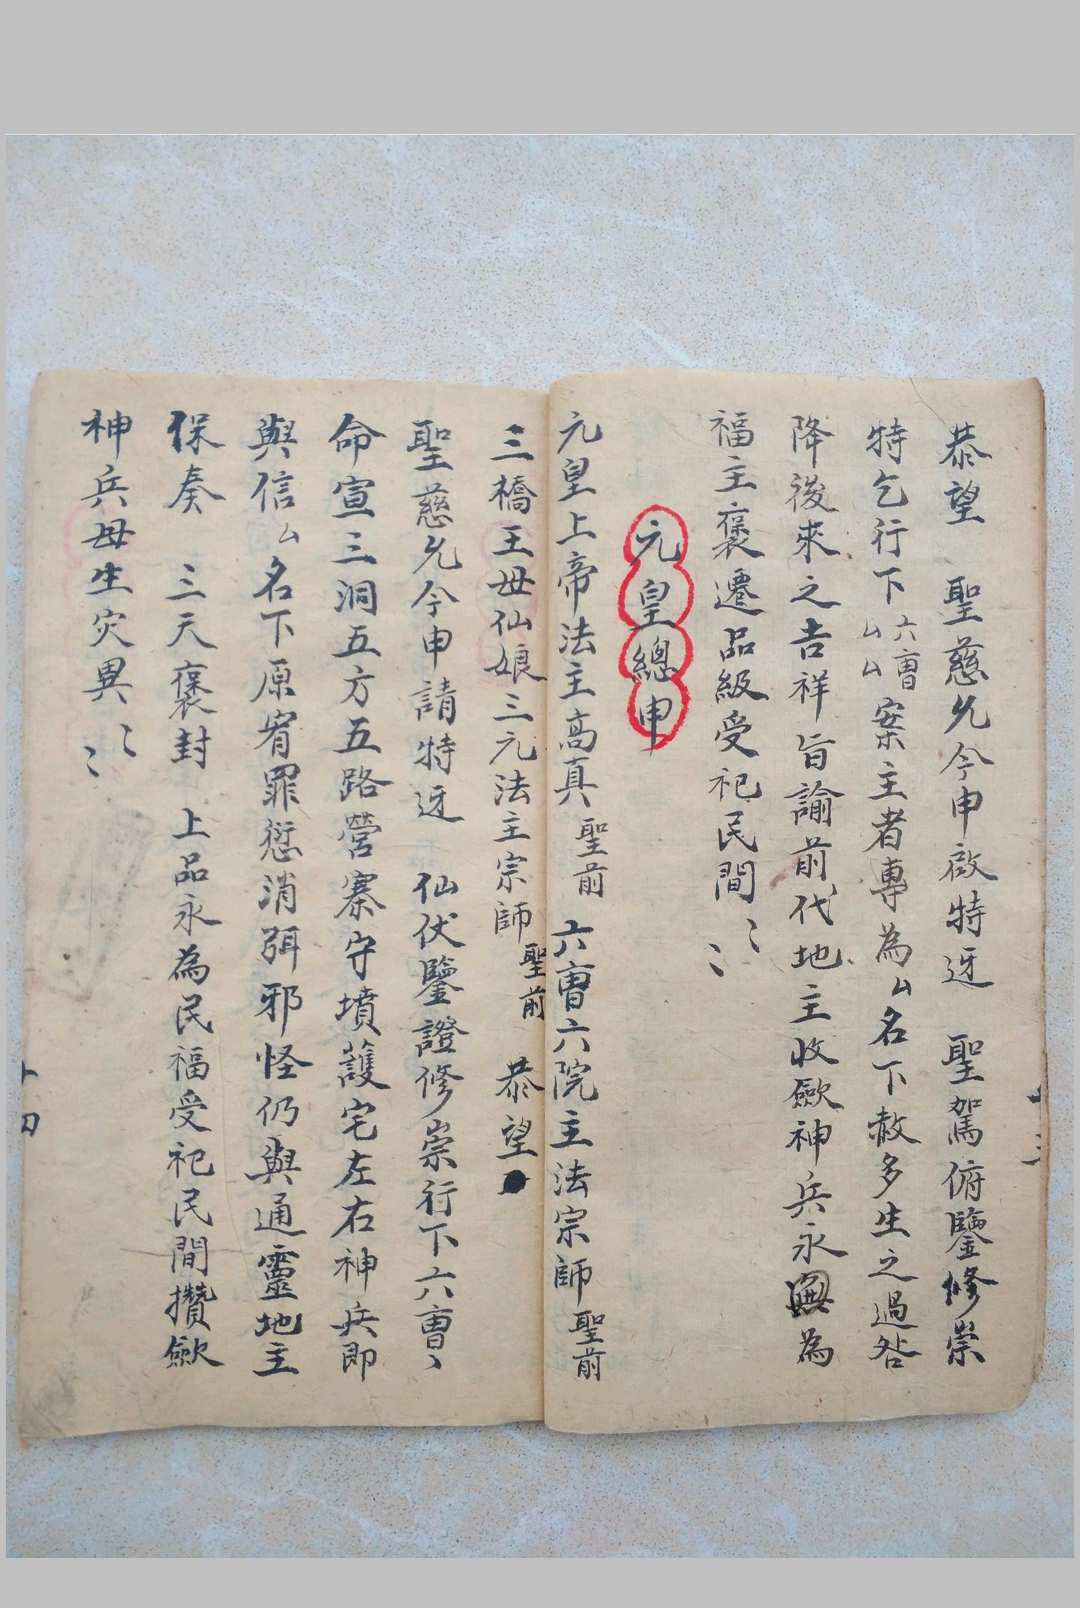 恭望 聖慈允今申啟特迓 聖駕俯鑒修崇
特乞行下六曹ムム案主者專為ム名下赦多生之過咎
降後來之吉祥旨諭前代地主收歛神兵永為
福主褒遷品級受祀民間〻
元皇總申
元皇上帝法主高真聖前 六曹六院主法宗師聖前
三橋王母仙娘三元法主宗師聖前 恭望
聖慈允今申請特迓 仙伏鑒證修崇行下六曹〻
命宣三洞五方五路營寨守墳護宅左右神兵即
與信ム名下原宥罪愆消弭邪怪仍與通靈地主
保奏 三天褒封 上品永為民福受祀民間攢歛
神兵毋生灾異〻
十三
十四